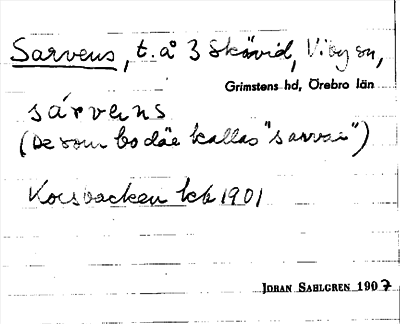 Sarvens, t. å 3 Skävid, Viby sn,
Grimstens hd, Örebro län
sárvens
(De som bo där kallas "sarvar")
Korsbacken kck 1901
JOHAN SAHLGREN 1907